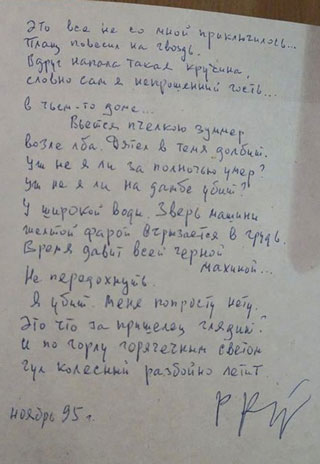 Это все не со мной приключилось...
Плащ повесил на гвоздь.
Вдруг напала такая кручина,
словно сам я непрошенный гость...
в чьем-то доме...
Вьется пчелкою зуммер
возле лба. Дятел в темя долбит.
Уж не я ли за полночью умер?
Уж не я ли на дамбе убит?
У широкой воды. Зверь машины
желтой фарой вгрызается в грудь.
Время давит всей черной
махиной...
Не передохнуть.
Я убит. Меня попросту нету.
Это что за пришелец глядит?
И по горлу горячечным светом
гул колесный разбойно летит.
ноябрь 95 г.